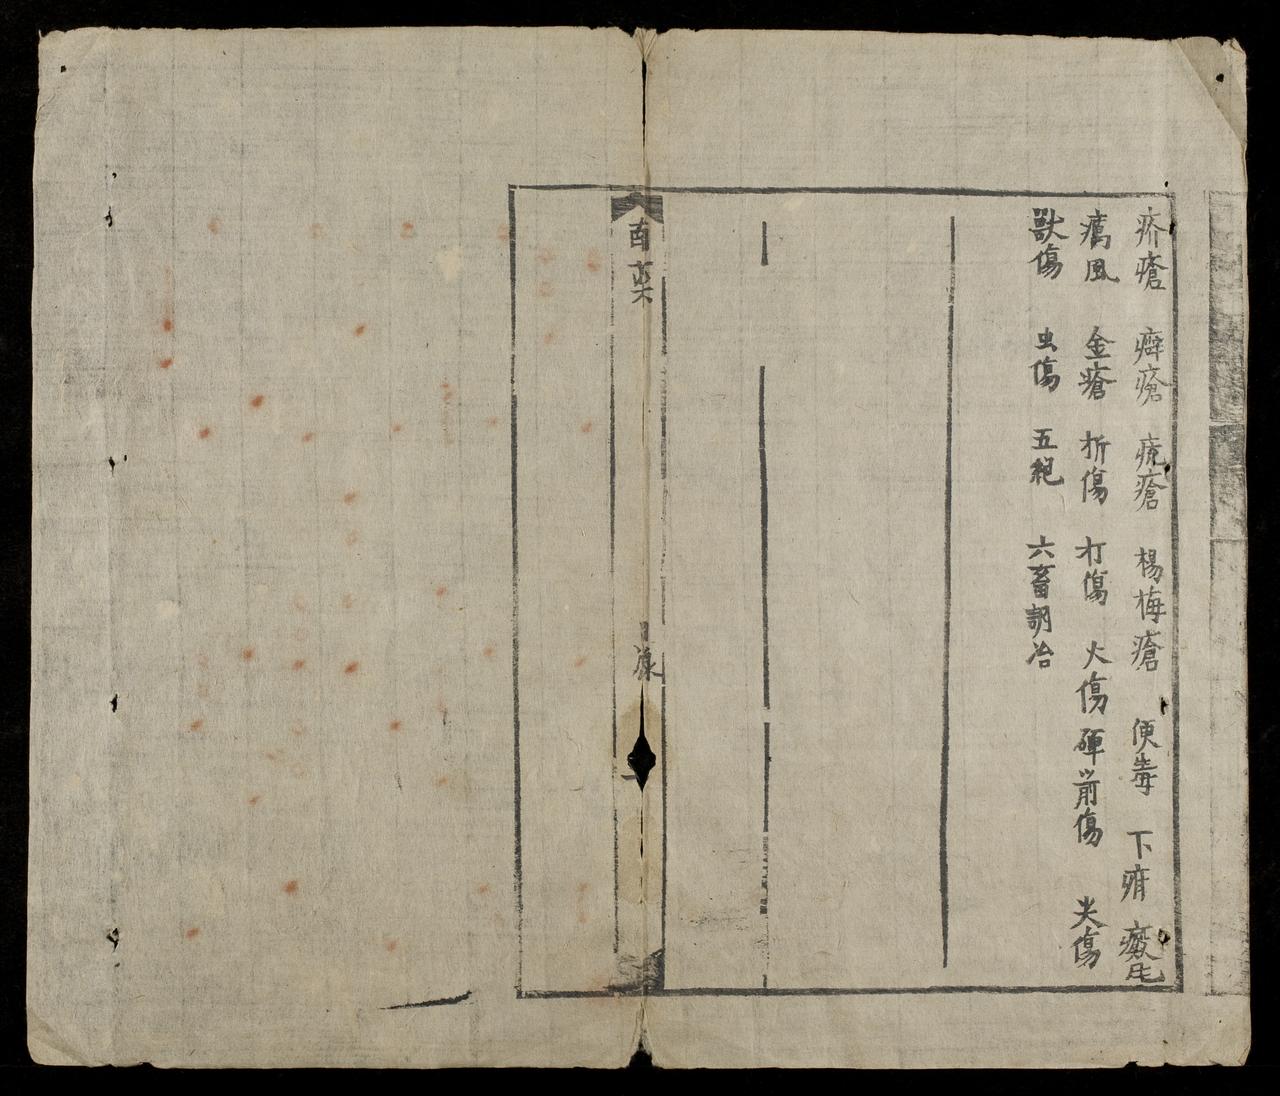 疥瘡 癬瘡 疣瘡 楊梅瘡 便毒 下疳
癘風 金瘡 折傷 打傷 火傷 砷前傷 犬傷
獸傷 虫傷 五絕 六畜調治
南藥
目録